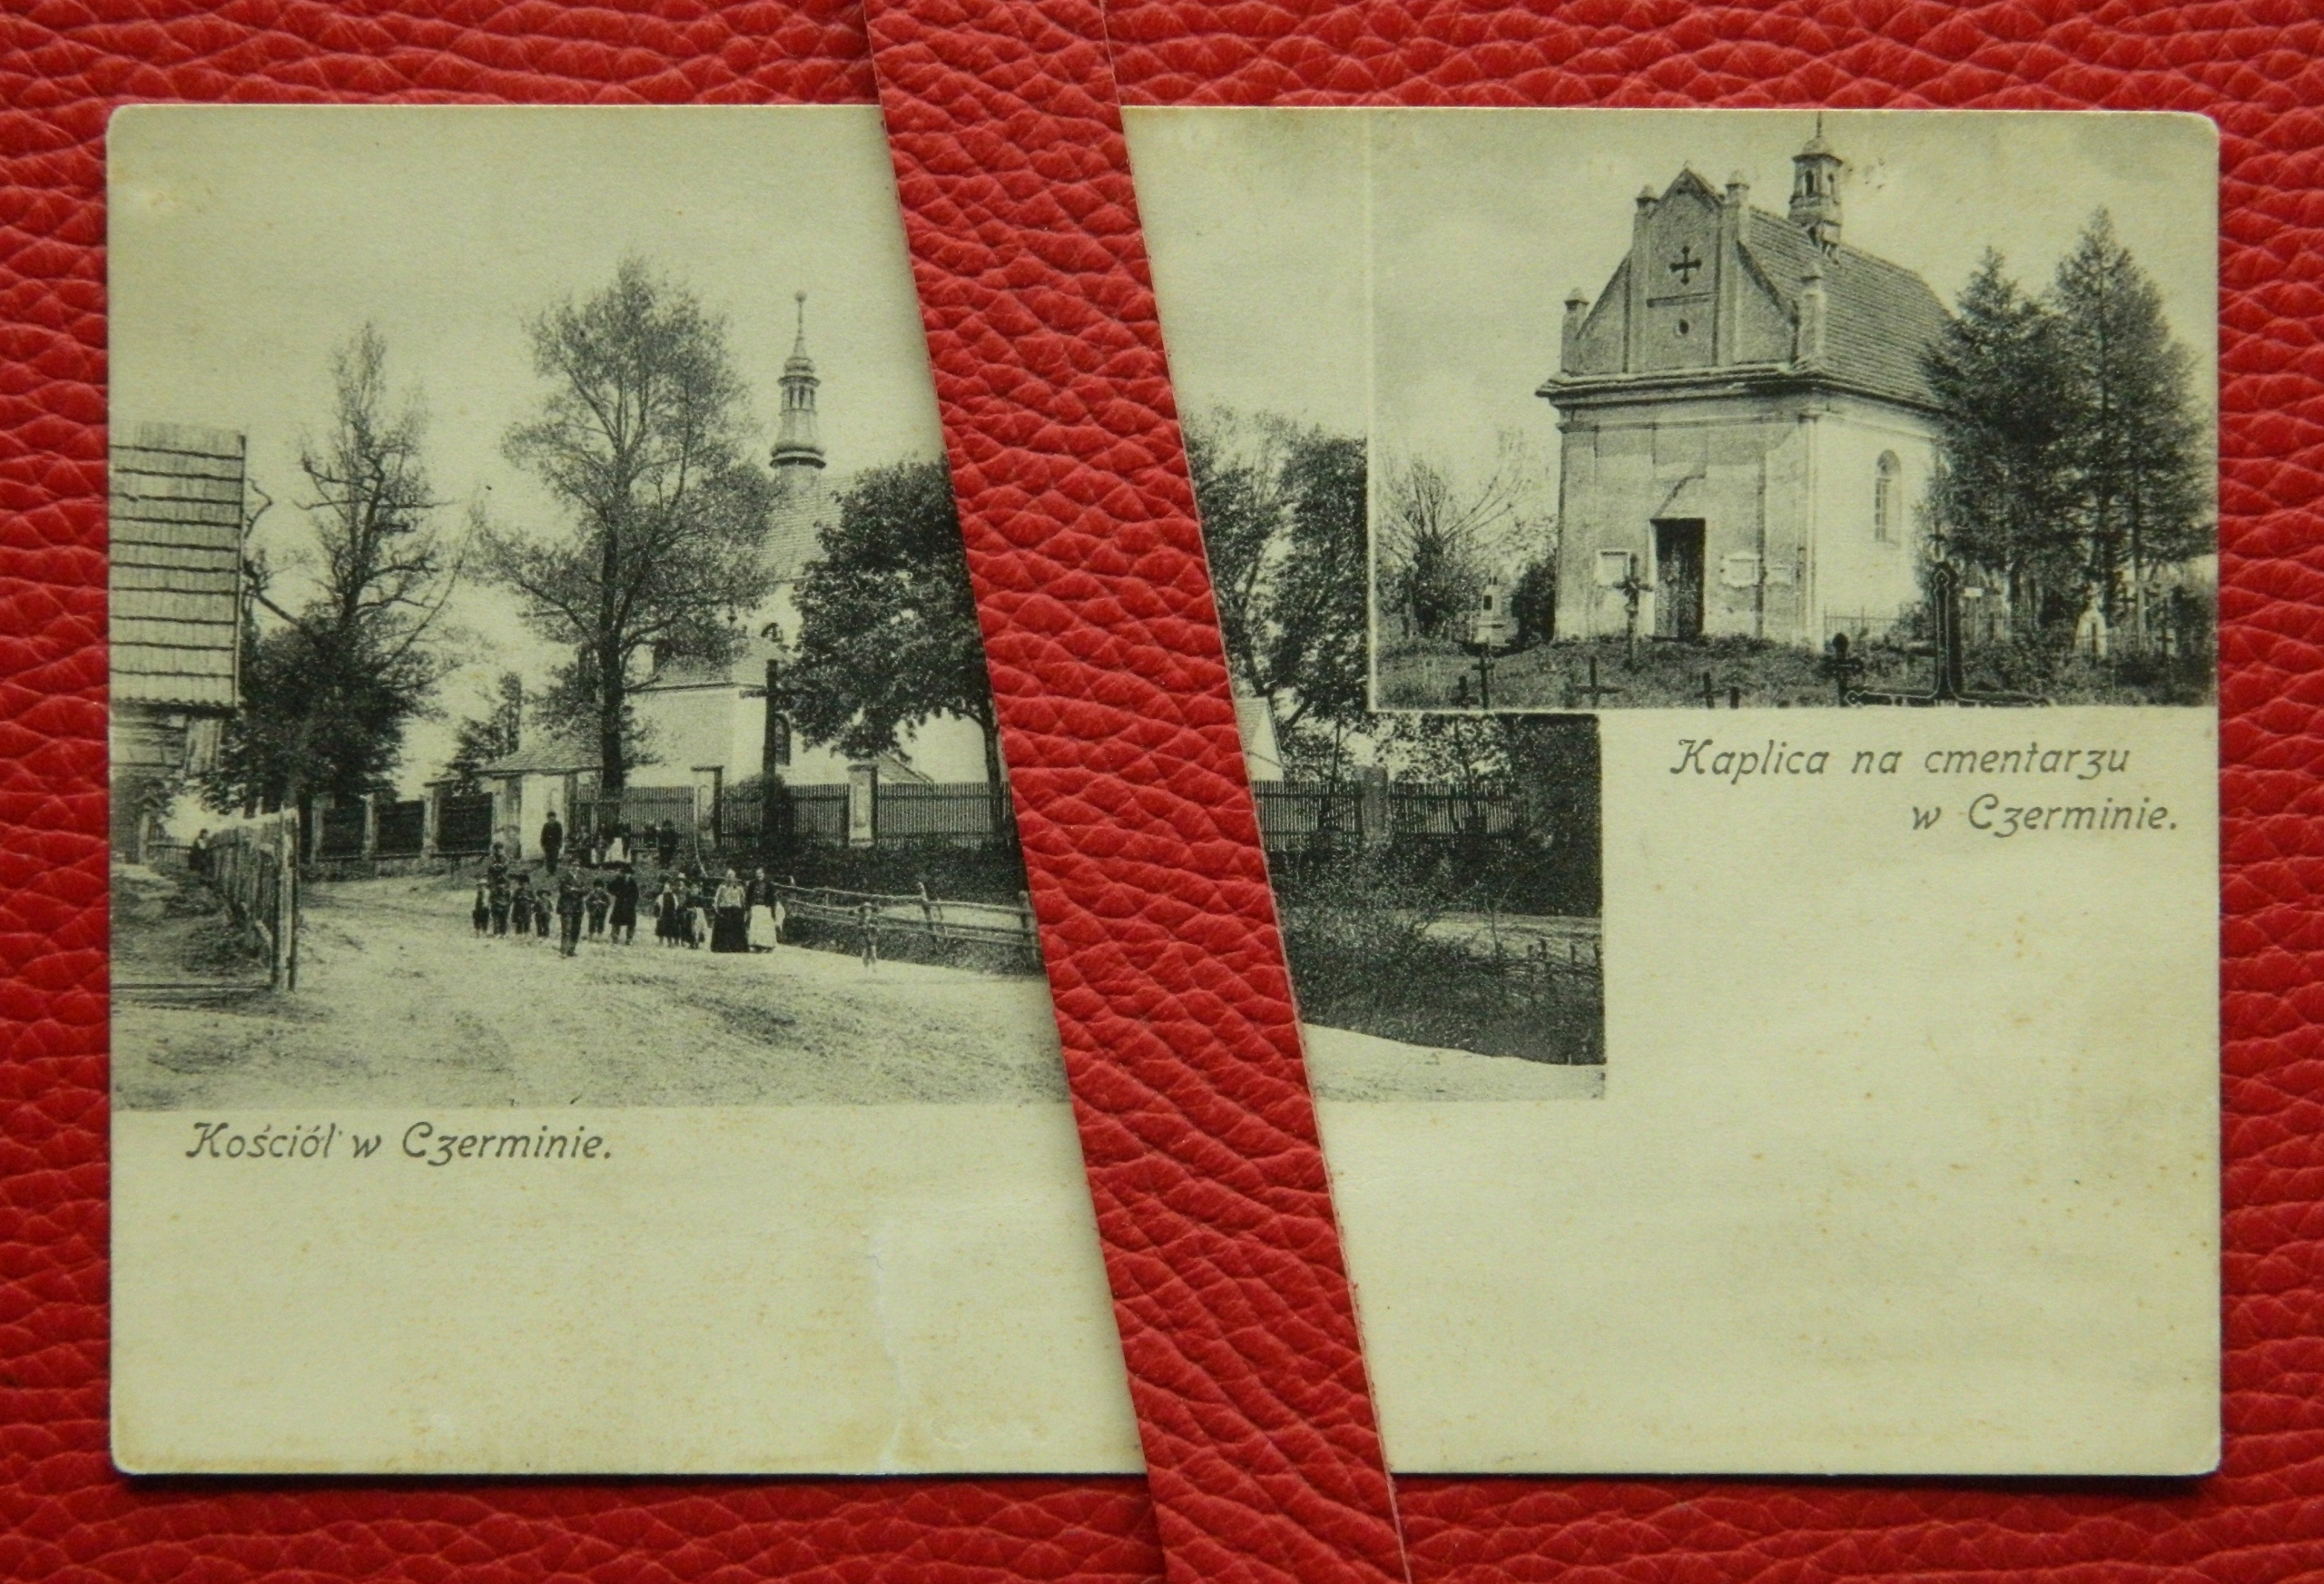 Kaplica na cmentarzu
w Czerminie.
Kościół w Czerminie.